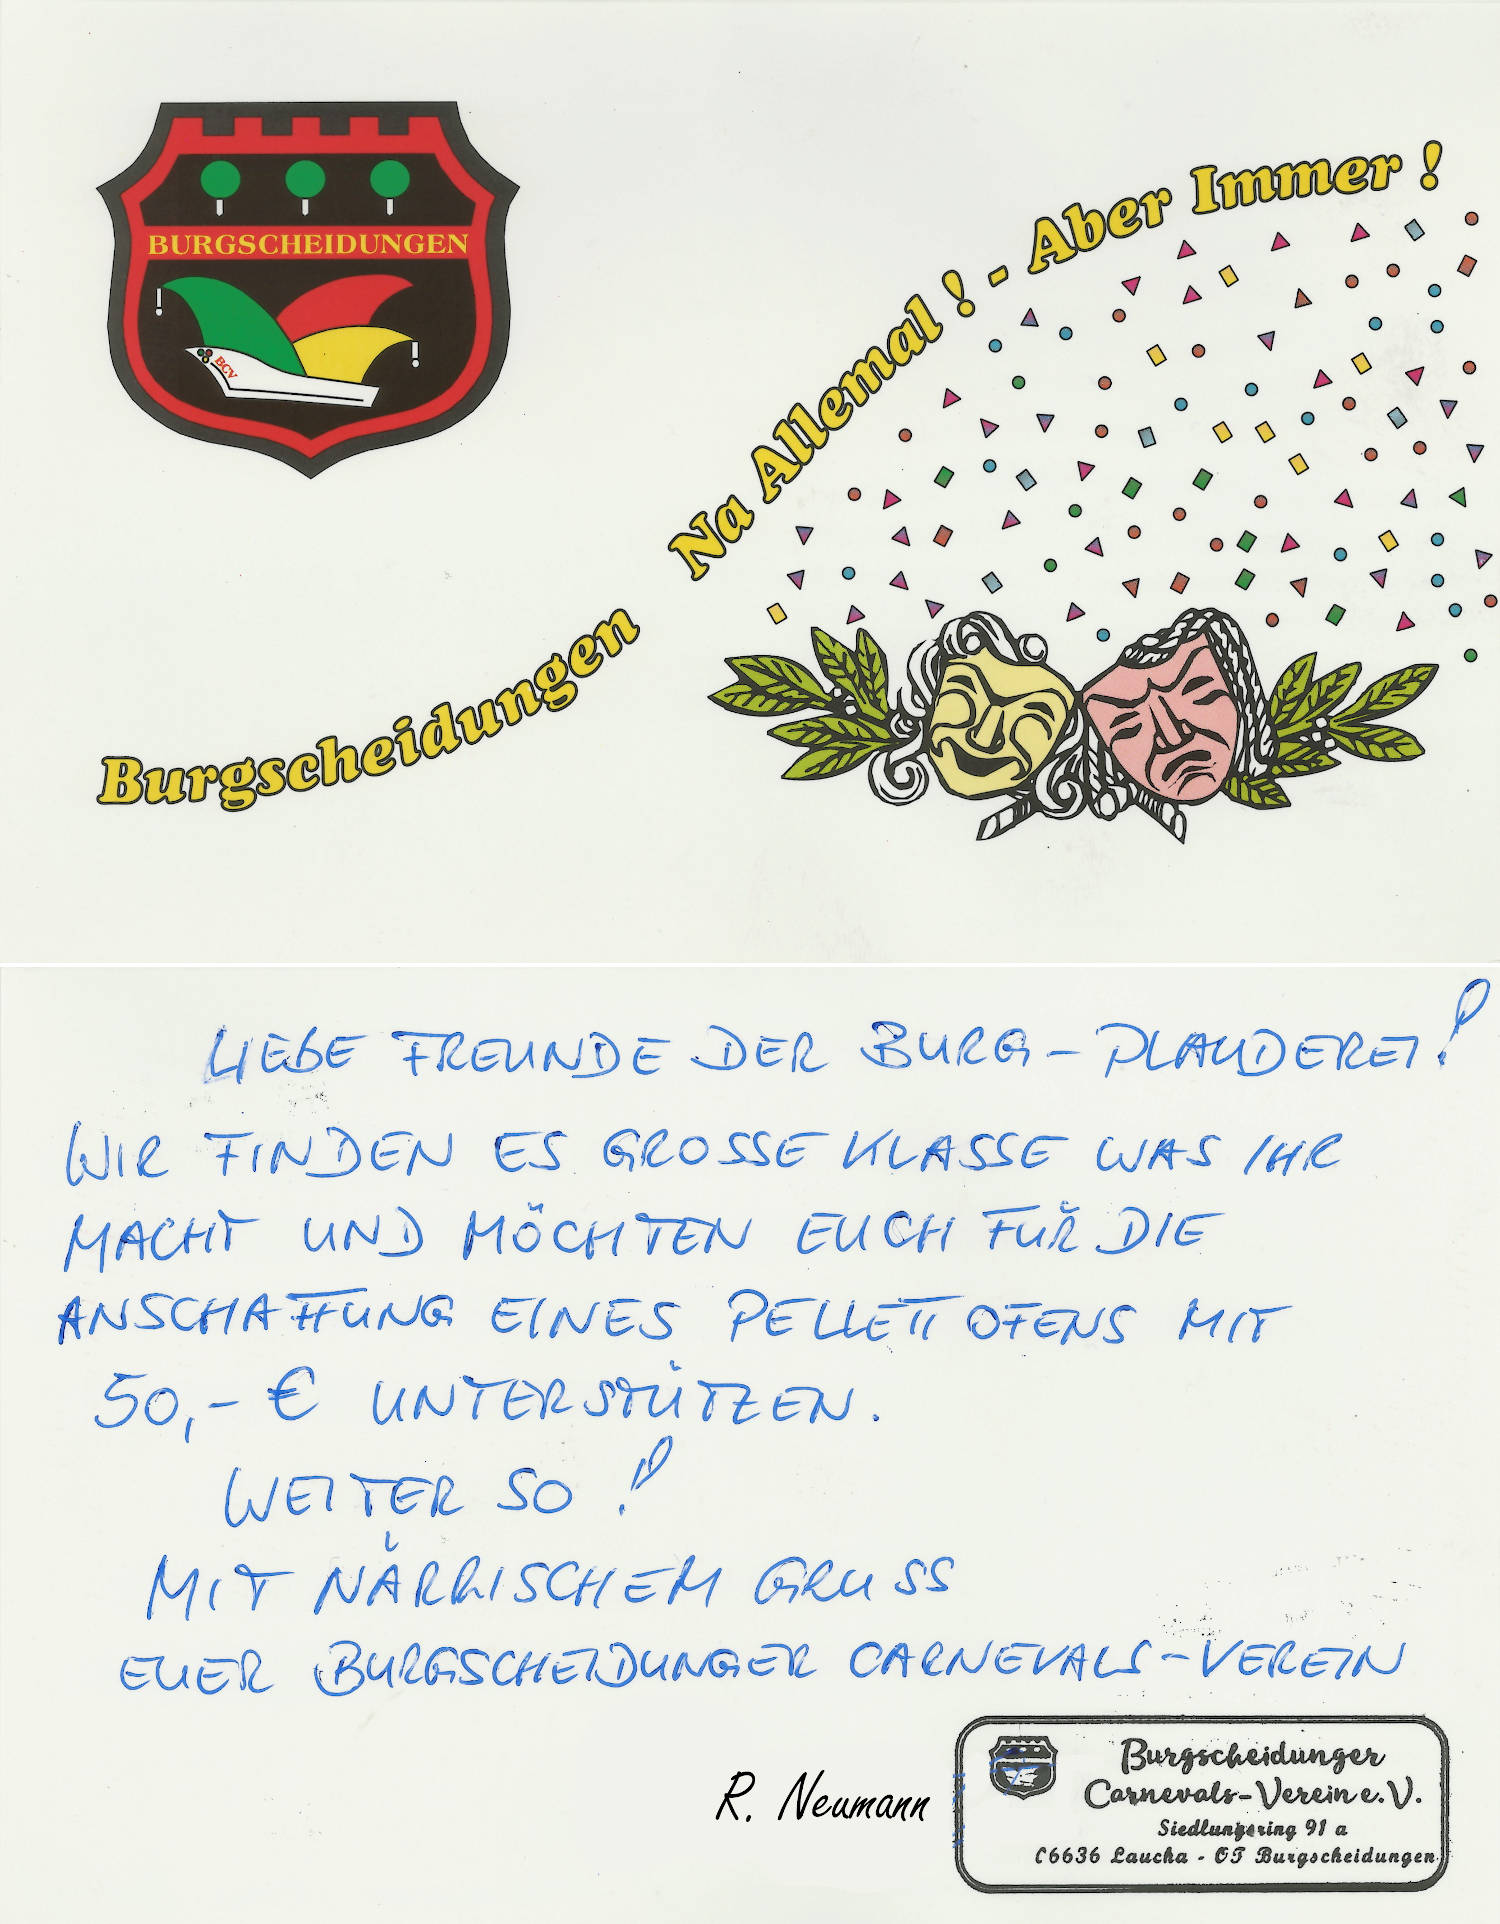 BURGSCHEIDUNGEN
BCV
Burgscheidungen Na Allemal ! - Aber Immer !
LIEBE FREUNDE DER BURG - PLAUDEREI!
WIR FINDEN ES GROSSE KLASSE WAS IHR
MACHT UND MÖCHTEN EUCH FÜR DIE
ANSCHAFFUNG EINES PELLETTOFENS MIT
50,- € UNTERSTÜTZEN.
WEITER SO !
MIT NÄRRISCHEM GRUSS
EUER BURGSCHEIDUNGER CARNEVALS-VEREIN
R. Neumann
Burgscheidunger
Carnevals-Verein e.V.
Siedlungsring 91 a
06636 Laucha - OT Burgscheidungen